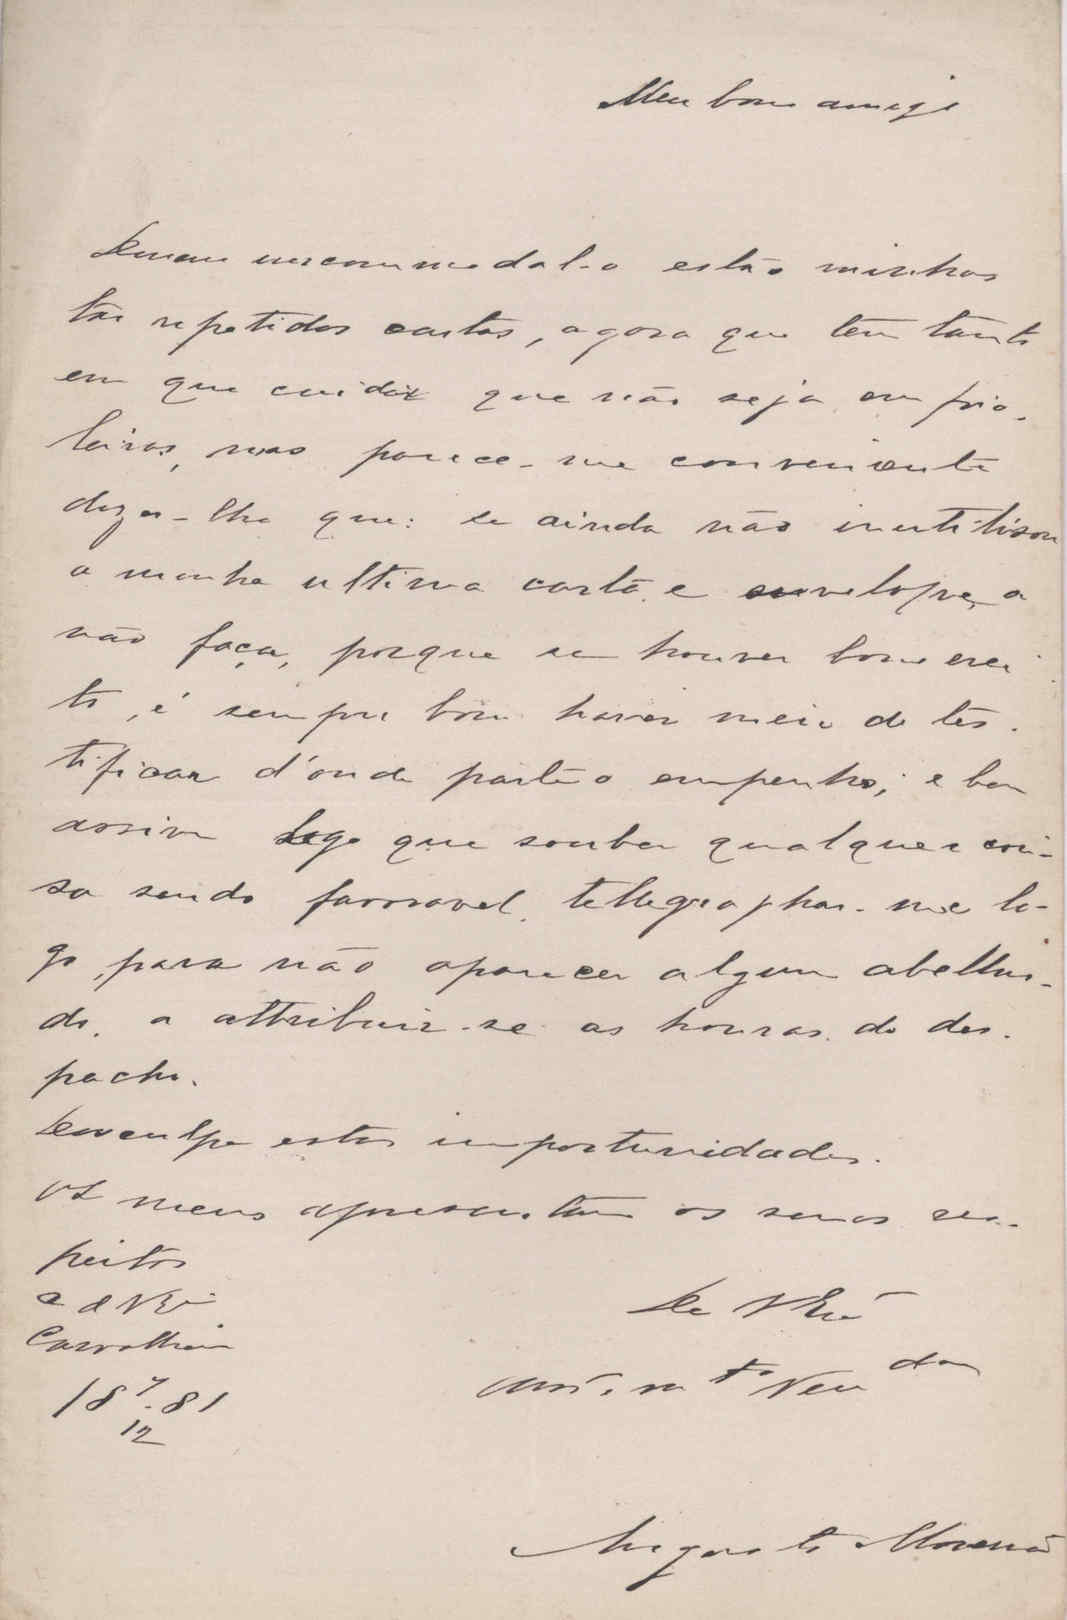 Meu bom amigo
Demais incommodal-o estão minhas
tão repetidas cartas, agora que tem tanto
em que cuidar que não seja em frio-
leiras, mas parece-me conveniente
dizer-lhe que: se ainda não inutilisou
a minha ultima carta e envelope, a
não faça, porque se houver bom exi
to, é sempre bom haver meio de tes-
tificar d'onde parte o empenho; e bem
assim logo que souber qualquer coi-
sa sendo favoravel, tellegraphar-me lo-
go, para não aparecer algum abelhu-
do, a attribuir-se as honras do des-
pacho.
Desculpe estas importunidades.
Os meus apresentam os seus res-
peitos
a de VEx
Carvalhais
18 7/12 81
De VExa
Amo. mto Vendor
Augusto